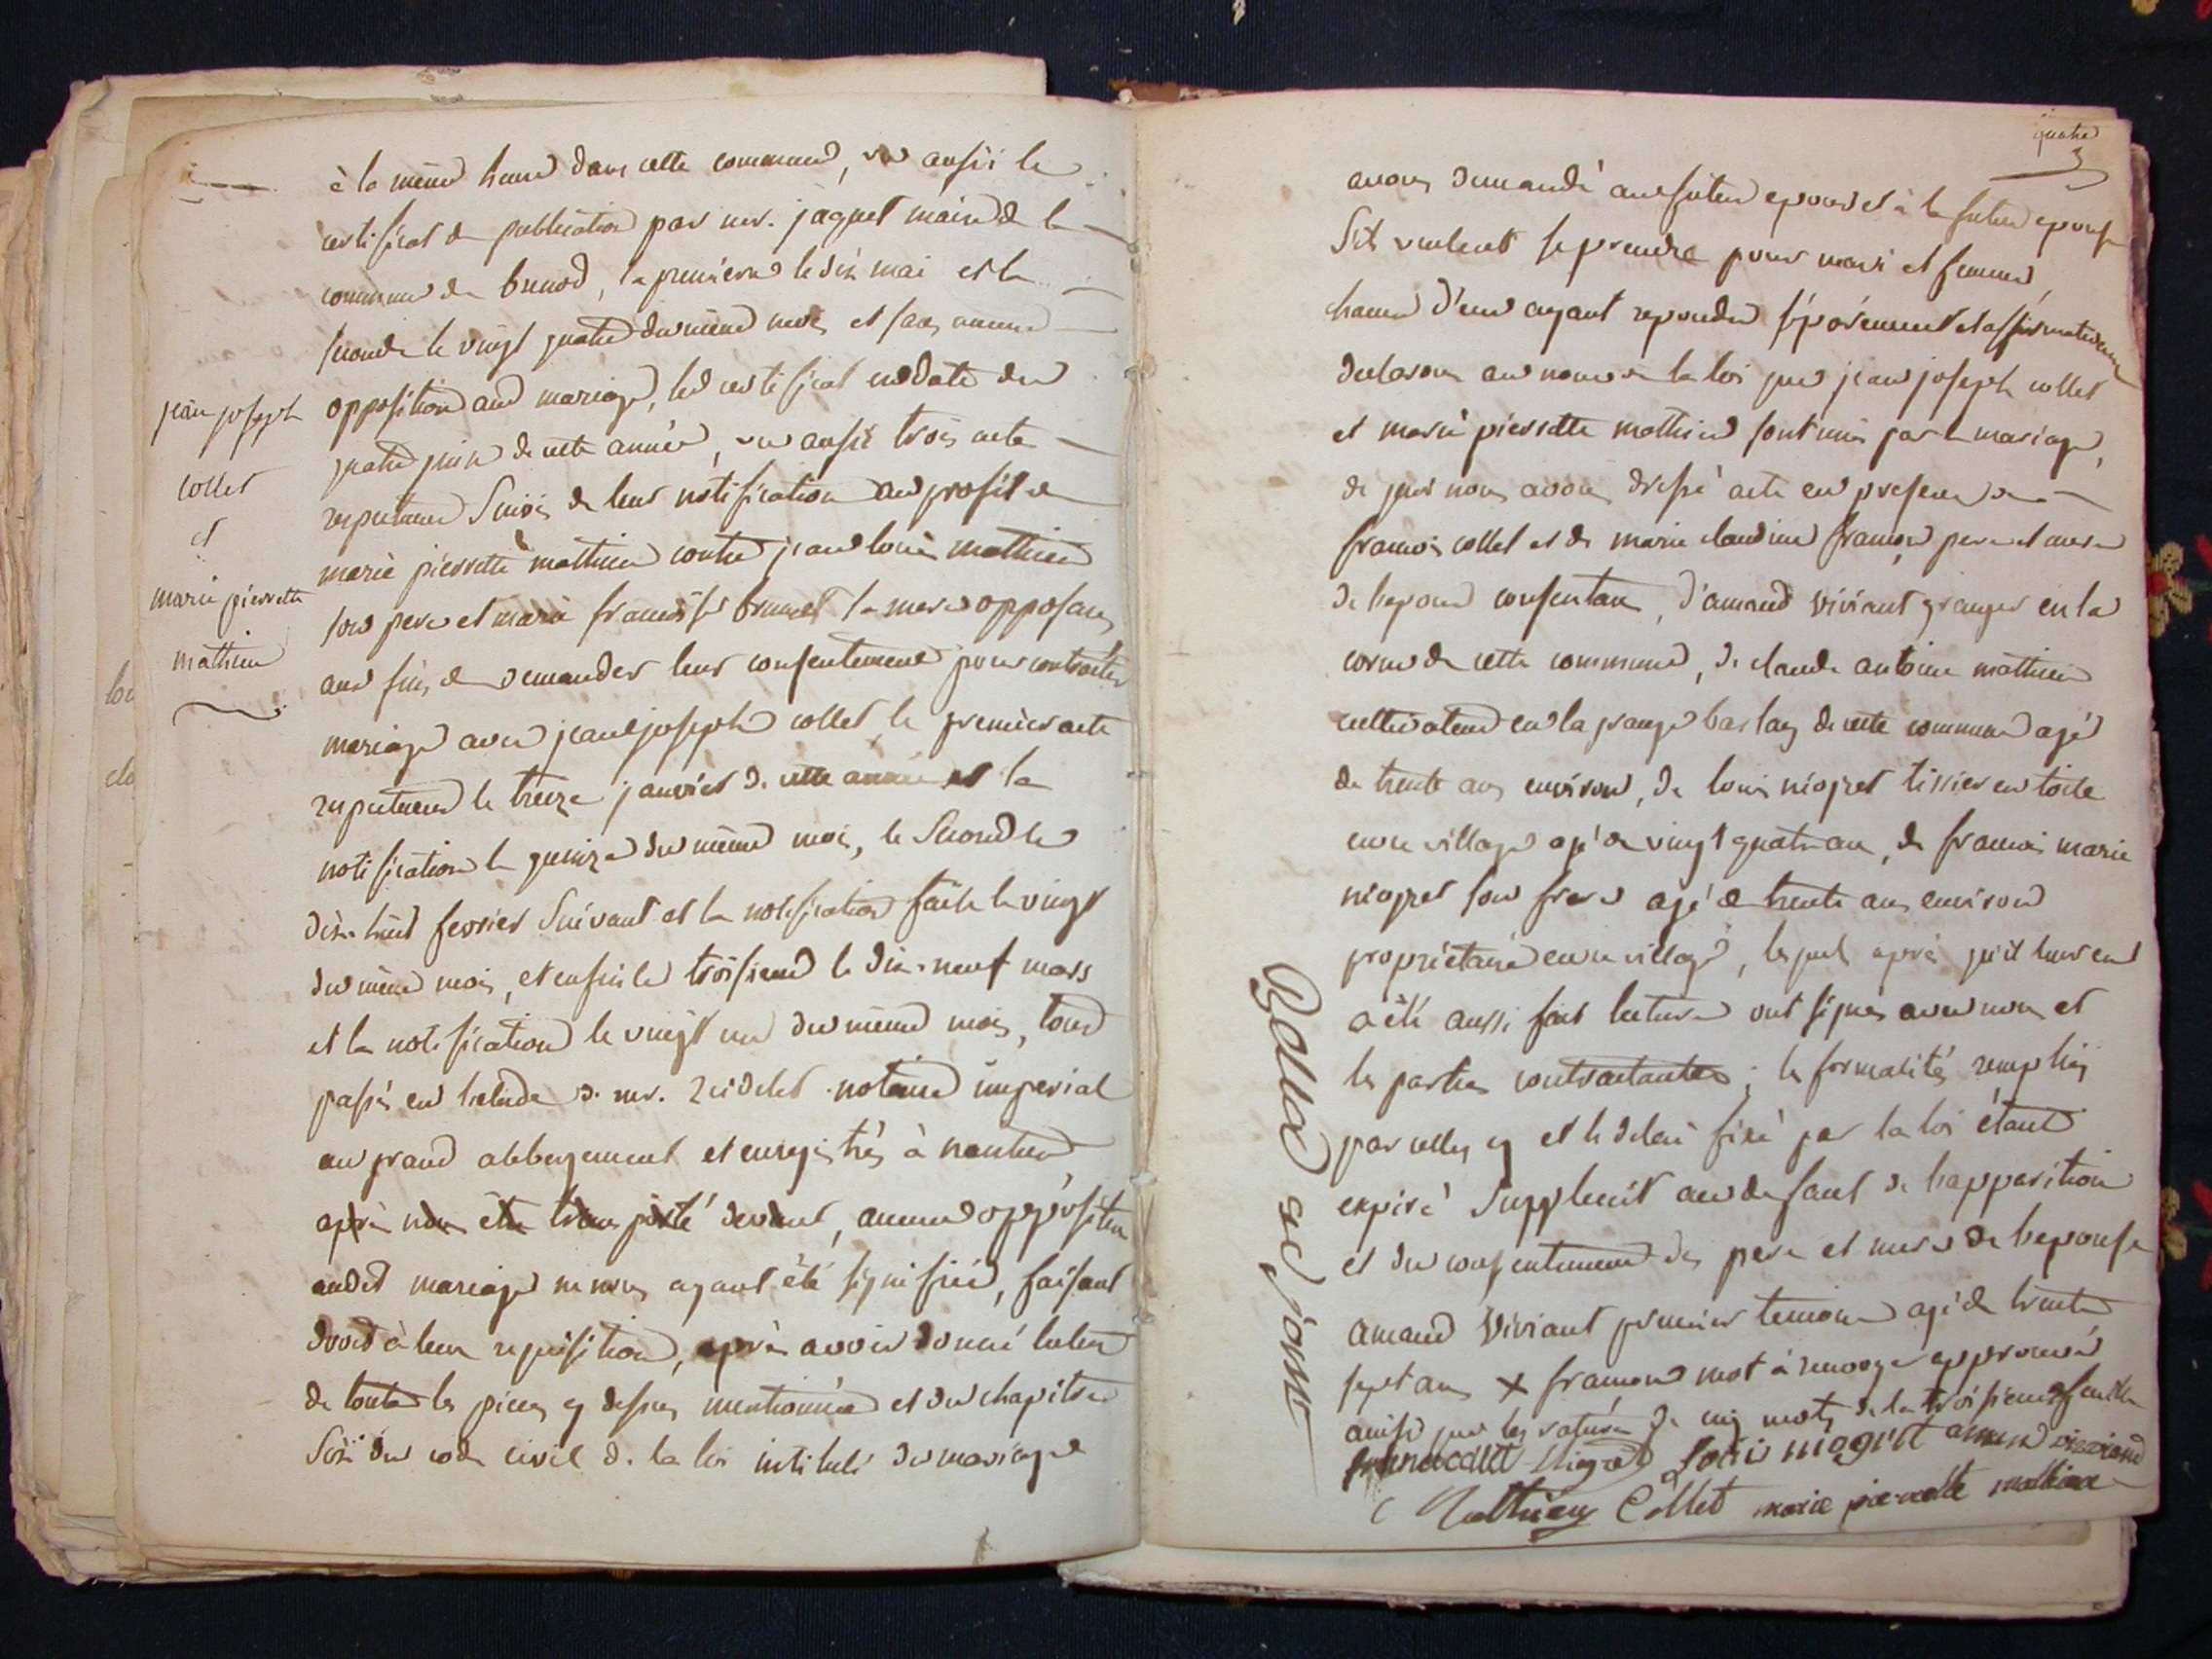 jean joseph
collet
et
marie pierrette
mathieu
à la même heure dans cette commune, vu aussi le
certificat de publication par mr. jaquet maire de la
commune de brenod, la premiere le dix mai et la
seconde le vingt quatre du même mois et sans aucune
opposition aud mariage, led certificat en date du
quatre juin de cette année, vu aussi trois acte
respectueux suivis de leur notification au profit de
marie pierrette mathieu contre jean louis mathieu
son pere et marie françoise brunet sa mere opposans
aux fins de demander leur consentement pour contracter
mariage avec jean joseph collet le premier acte
respectueux le treize janvier de cette année et la
notification le quinze du même mois, le second le
dix-huit fevrier suivant et la notification faite le vingt
du même mois, et enfin le troisieme le dix-neuf mars
et la notification le vingt un du même mois, tous
passés en l'etude de mr. notaire imperial
au grand abbergement et enregistrés à nantua
après nous être transporté devant, aucune opposition
audit mariage ne nous ayant été signifiée, faisant
droit à leur requisition, après avoir donné lecture
de toutes les pieces cy dessus mentionnées et du chapitre
six du code civil de la loi intitulé du mariage
quatre
3
avons demandé au futur epoux et à la future epouse
s'ils veulent se prendre pour mari et femme,
chacun d'eux ayant repondu séparément et affirmativement
declarons au nom de la loi que jean joseph collet
et marie pierrette mathieu sont unis par le mariage,
de quoi nous avons dressé acte en presence de
francois collet et de marie claudine framon pere et mere
de l'epoux consentans, d'amand viviant granger en la
corne de cette commune, de claude antoine mathieu
cultivateur en la grange bas lag de cette commune agé
de trente ans environ, de louis niogret tissier en toile
en ce village agé de vingt quatre ans, de francois marie
niogret son frere agé de trente ans environ
proprietaire en ce village, lesquels après qu'il leur en
a été aussi fait lecture ont signés avec nous et
les parties contractantes; les formalités remplies
par celles cy et le delai fixé par la loi étant
expiré suppleent au defaut de l'apparition
et du consentement des pere et mere de l'epouse
amand viviant premier temoin agé de trente
sept ans x framon mot à renvoyé approuvé
ainsi que les rature de cinq mots de la troisieme feuille
collet Niogret Louis niogret amand viviand
Mathieu Collet marie pierrette mathieu